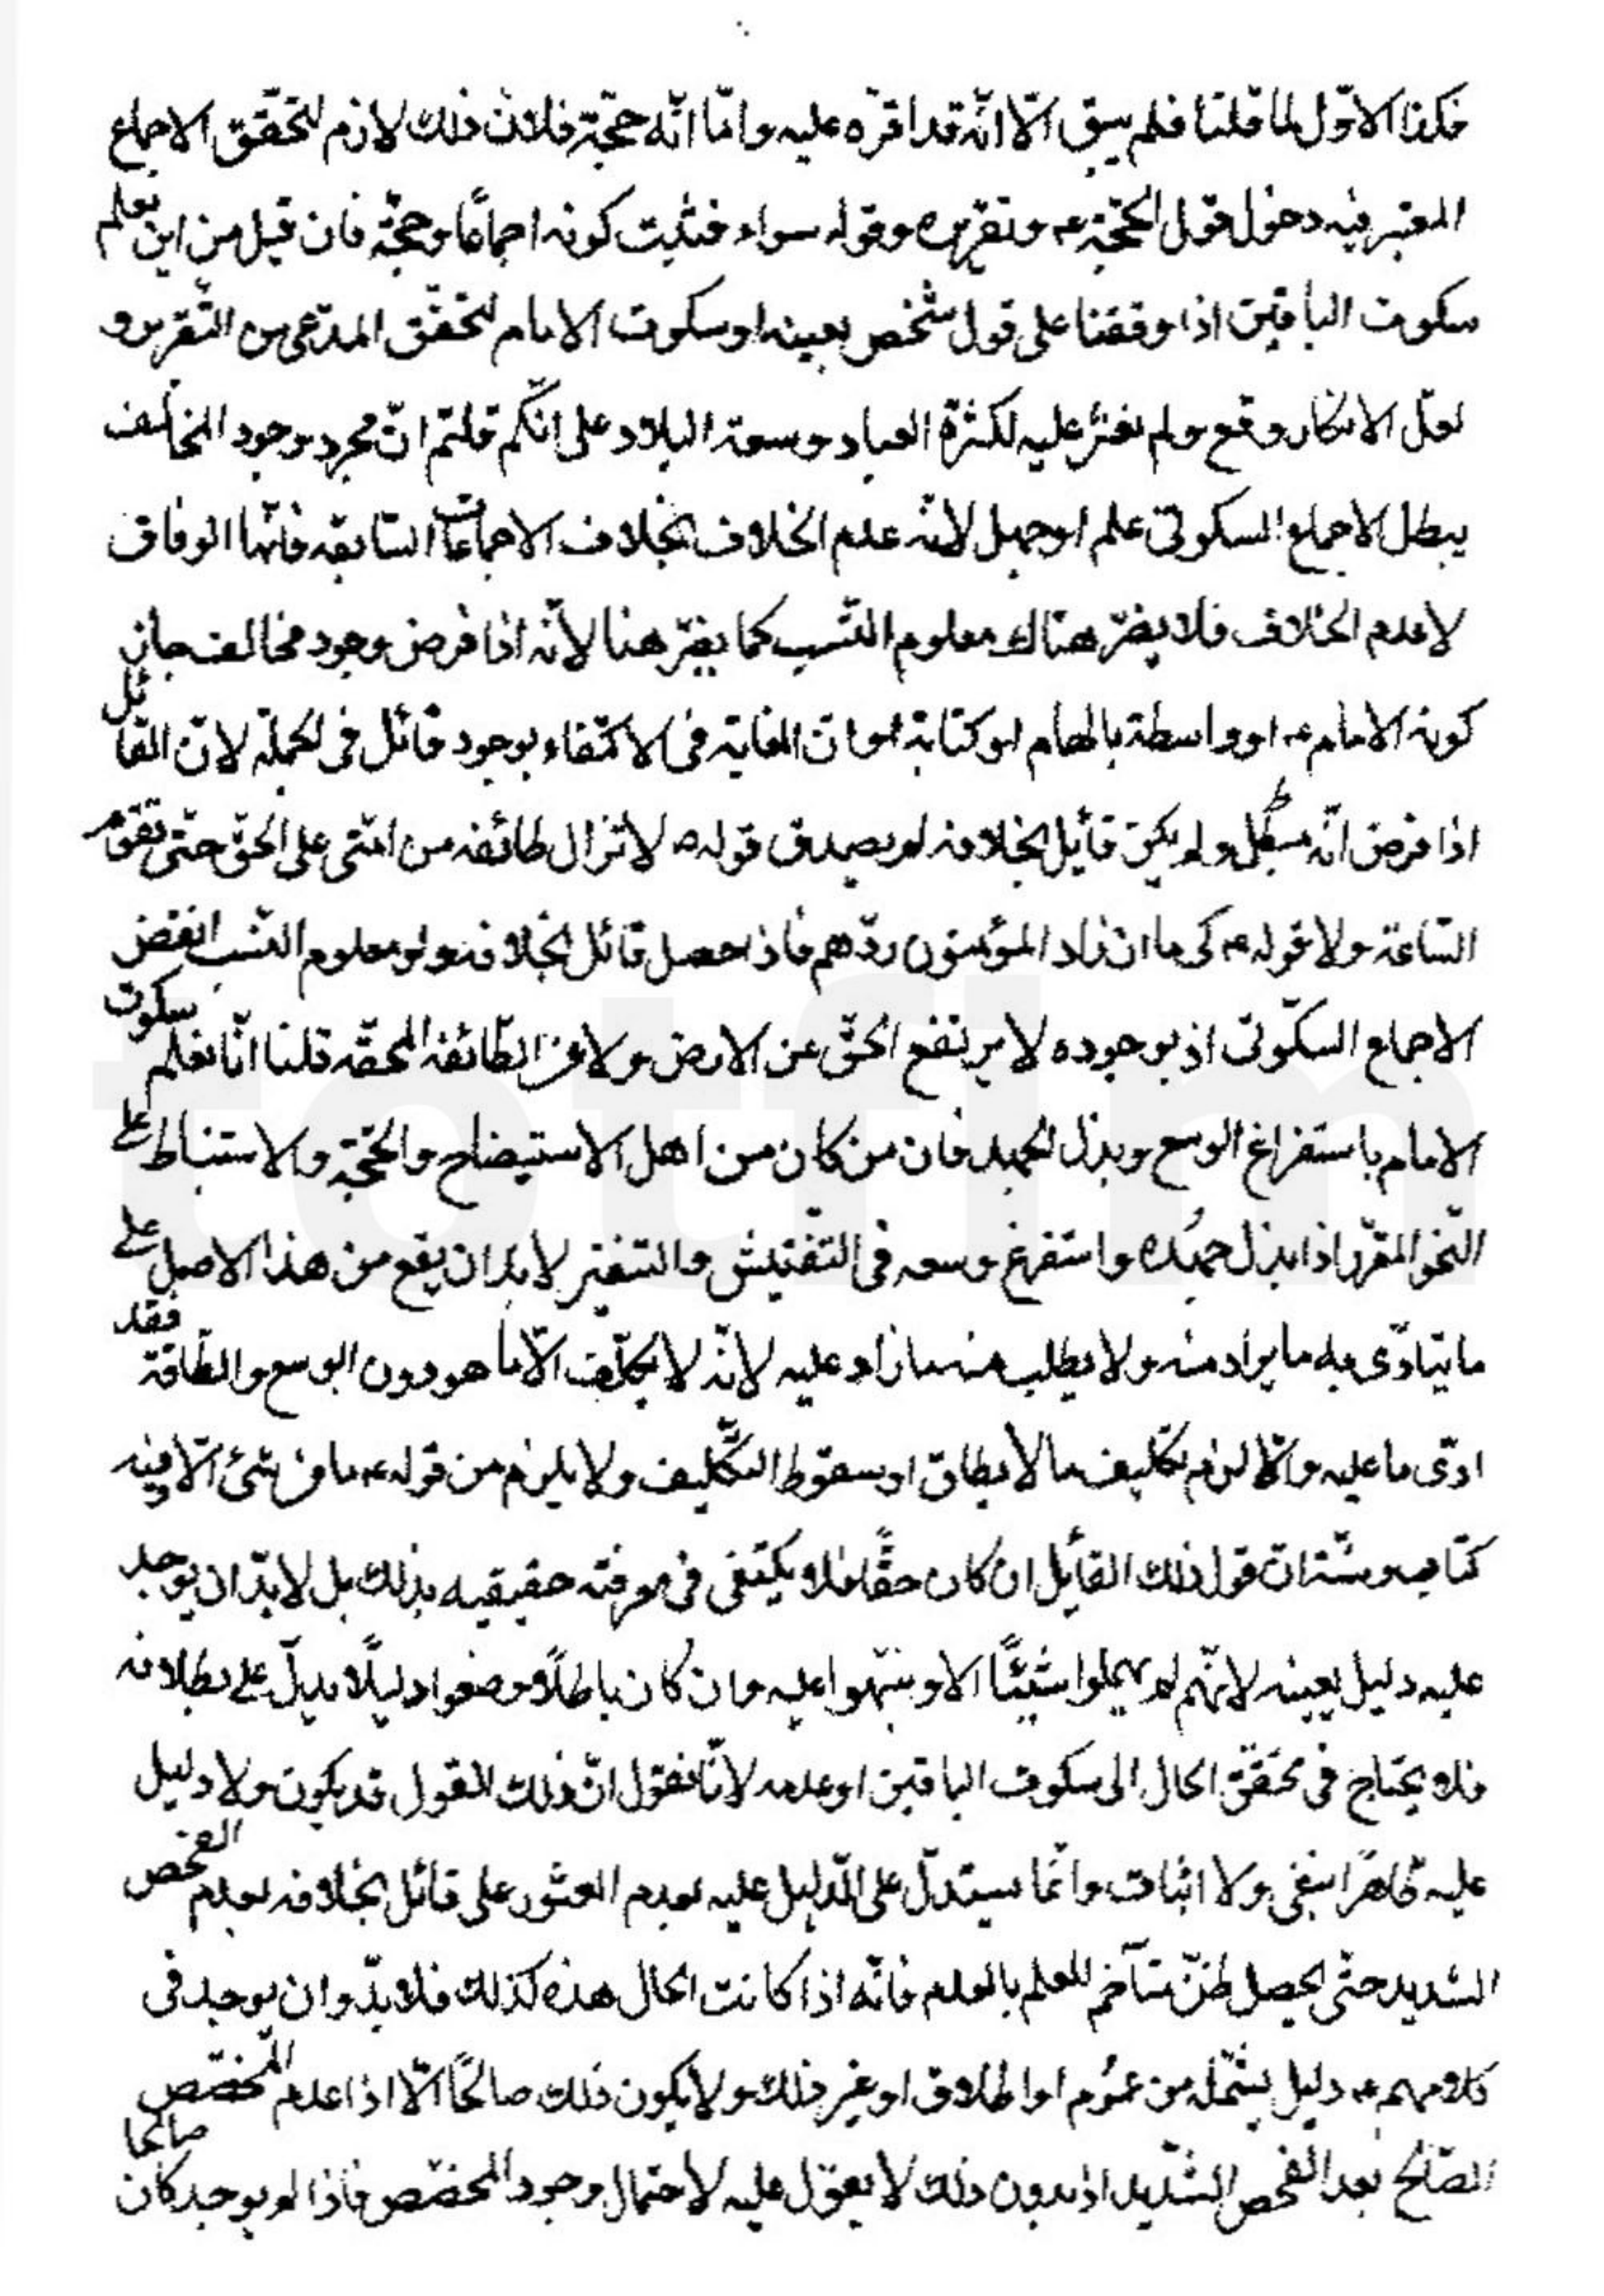 فكذا الاوّل لما قلنا فلم يبق الّا انّه قد اقرّه عليه وامّا انّه حجّة فلانّ ذلك لازم لتحقّق الاجماع
المعتبر فيه دخول قول الحجّة ع وتقريره وقوله سواء فثبت كونه اجماعًا وحجّة فان قيل من اين نعلم
سكوت الباقين اذا وقفنا على قول شخص بعينه او سكوت الامام لتحقّق المدّعى من التّقرير و
لعلّ الانكار وقع ولم نعثر عليه لكثرة العباد وسعة البلاد على انّكم قلتم انّ مجرد وجود المخالف
يبطل الاجماع السكوتى علم او جهل لانّه عدم الخلاف بخلاف الاجماعات السّابقه فانّها الوفاق
لاعدم الخلاف فلا يضرّ هناك معلوم النّسب كما يضرّ هنا لانّه اذا فرض وجود مخالف جاز
كونه الامام ع او واسطة بالهام او كتابة او انّ الغاية فى الاكتفاء بوجود قائل فى الجملة لانّ القائل
اذا فرض انّه مبطل ولم يكن قائل بخلافه لم يصدق قوله ص لا تزال طائفه من امّتى على الحقّ حتّى تقوم
السّاعة ولا قوله ع كى ما ان زاد المؤمنون ردّهم فاذا حصل قائل بخلافه ولو معلوم النّسب انتقض
الاجماع السكّوتى اذ بوجوده لا يرتفع الحقّ عن الارض ولا من الطّائفة المحقّه قلنا انّا نعلم سكوت
الامام باستفراغ الوسع وبذل الجهد فان من كان من اهل الاستيضاح والحجّة والاستنباط على
النّحو المقرّر اذا بذل جهده واستفرغ وسعه فى التّفتيش والتنقير لابدّ ان يقع من هذا الاصل على
ما يتادّى به ما يراد منه ولا يطلب منه ما زاد عليه لانّه لا يكلّف الّا ما هو دون الوسع والطّاقة فقد
ادّى ما عليه والّا لزم تكليف ما لا يطاق او سقوط التّكليف ولا يلزم من قوله ع ما من شئ الّا وفيه
كتاب وسنّة انّ قول ذلك القائل ان كان حقًّا فلا يكتفى فى معرفته حقيقيه بذلك بل لابدّ ان يوجد
عليه دليل بعينه لانّهم لم يهملوا شيئًا الا ونبّهوا عليه وان كان باطلًا وضعوا دليلًا يدلّ على بطلانه
فلا يحتاج فى تحقّق الحال الى سكوت الباقين او عدمه لانّا نقول انّ ذلك القول قد يكون ولا دليل
عليه ظاهرًا بنفى ولا اثبات وانّما يستدلّ على الدّليل عليه بعدم العثور على قائل بخلافه بعدم الفحص
الشديد حتّى يحصل ظنّ متآخم للعلم بالعدم فانّه اذا كانت الحال هذه كذلك فلا بدّ وان يوجد فى
كلامهم ع دليل يشمله من عموم او اطلاق او غير ذلك ولا يكون ذلك صالحًا الّا اذا عدم المخصّص
الصّالح بعد الفحص الشّديد اذ بدون ذلك لا يعوّل عليه لاحتمال وجود المخصّص فاذا لم يوجد كان صالحا